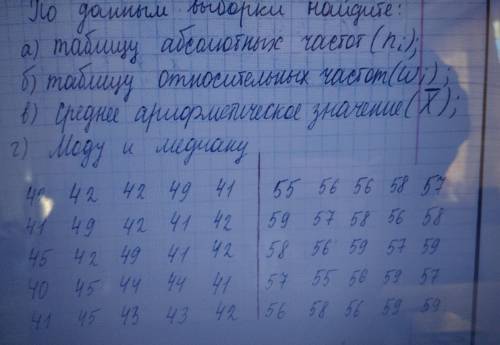 По данным выборки найдите:
а) таблицу абсолютных частот (ni);
б) таблицу относительных частот (wi);
в) Среднее арифметическое значение (X̄);
г) Моду и медиану
40 42 42 49 41 55 56 56 58 57
41 49 42 41 42 59 57 58 56 58
45 42 49 41 42 58 56 59 57 59
40 45 44 44 41 57 55 56 59 57
41 45 43 43 42 56 58 56 59 59